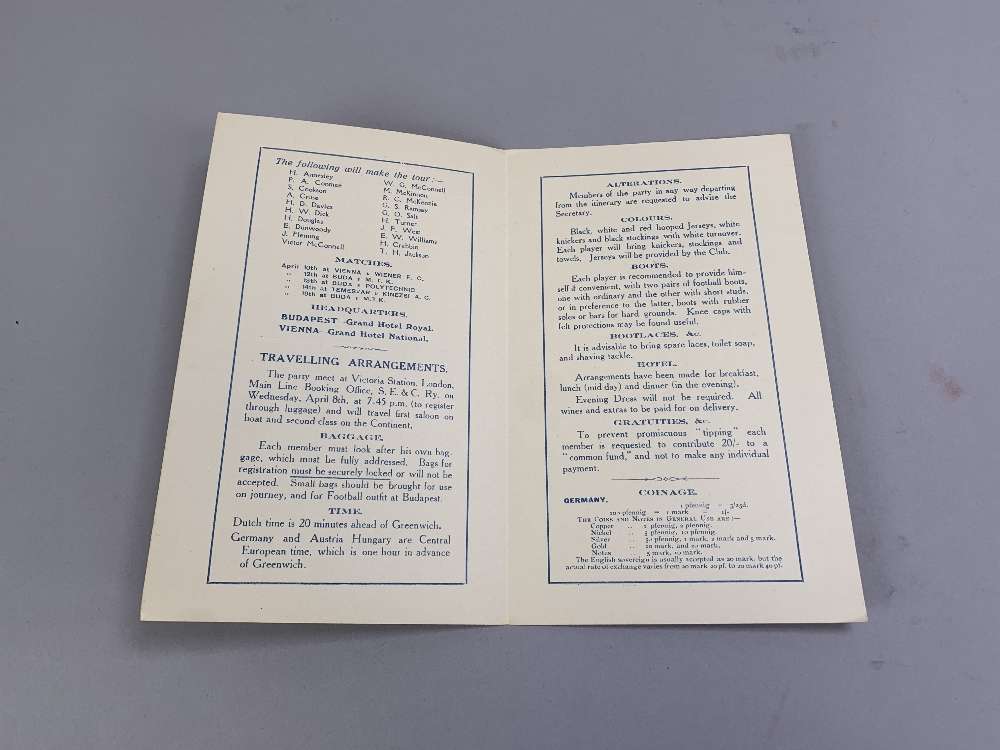 The following will make the tour :—
H. Annesley
P. A. Coomee
S. Cookson
A. Crine
H. D. Davies
H. W. Dick
H. Douglas
E. Dunwoody
J. Fleming
Victor McConnell
W. G. McConnell
M. McKinnon
R. C. McKenzie
G. S. Ramsey
G. O. Salt
H. Turner
J. F. Weir
E. W. Williams
H. Crabbin
T. H. Jackson
MATCHES.
April 10th at VIENNA v WIENER F. C.
„ 12th at BUDA v M. T. K.
„ 13th at BUDA v POLYTECHNIC
„ 14th at TEMESVAR v KINEZSI A. C.
„ 19th at BUDA v M.T.K.
HEADQUARTERS.
BUDAPEST—Grand Hotel Royal.
VIENNA—Grand Hotel National.
TRAVELLING ARRANGEMENTS.
The party meet at Victoria Station, London,
Main Line Booking Office, S. E. & C. Ry. on
Wednesday, April 8th, at 7-45 p.m. (to register
through luggage) and will travel first saloon on
boat and second class on the Continent.
BAGGAGE.
Each member must look after his own bag-
gage, which must be fully addressed. Bags for
registration must be securely locked or will not be
accepted. Small bags should be brought for use
on journey, and for Football outfit at Budapest.
TIME.
Dutch time is 20 minutes ahead of Greenwich.
Germany and Austria Hungary are Central
European time, which is one hour in advance
of Greenwich.
ALTERATIONS.
Members of the party in any way departing
from the itinerary are requested to advise the
Secretary.
COLOURS.
Black, white and red hooped Jerseys, white
knickers and black stockings with white turnover.
Each player will bring knickers, stockings and
towels. Jerseys will be provided by the Club.
BOOTS.
Each player is recommended to provide him-
self if convenient, with two pairs of football boots,
one with ordinary and the other with short studs,
or in preference to the latter, boots with rubber
soles or bars for hard grounds. Knee caps with
felt protections may be found useful.
BOOTLACES, &c.
It is advisable to bring spare laces, toilet soap,
and shaving tackle.
HOTEL.
Arrangements have been made for breakfast,
lunch (mid day) and dinner (in the evening).
Evening Dress will not be required. All
wines and extras to be paid for on delivery.
GRATUITIES, &c.
To prevent promiscuous "tipping" each
member is requested to contribute 20/- to a
"common fund," and not to make any individual
payment.
COINAGE.
GERMANY.
1 pfennig =
100 pfennig = 1 mark = 1/-
THE COINS AND NOTES IN GENERAL USE ARE :—
Copper „ 1 pfennig, 2 pfennig.
Nickel „ 5 pfennig, 10 pfennig.
Silver „ 50 pfennig, 1 mark, 2 mark and 5 mark.
Gold „ 10 mark, and 20 mark.
Notes „ 5 mark, 10 mark.
The English sovereign is usually accepted as 20 mark, but the
actual rate of exchange varies from 20 mark 20 pf. to 20 mark 40 pf.